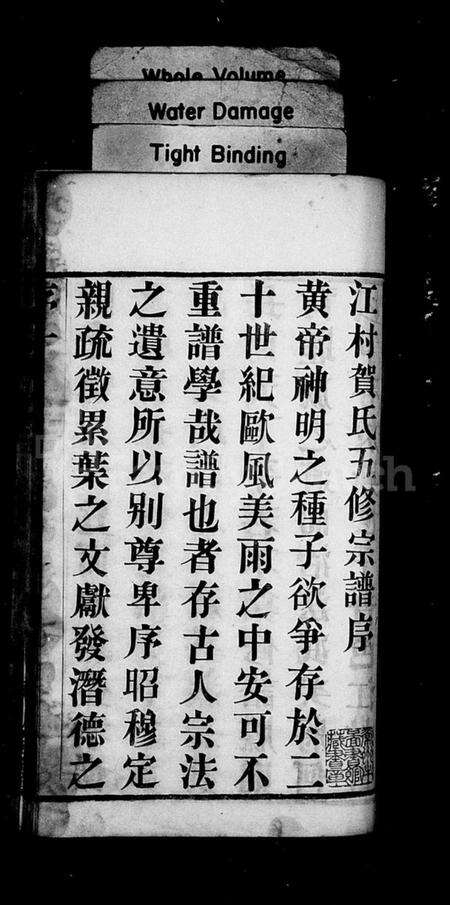 Whole Volume
Water Damage
Tight Binding
江村賀氏五修宗譜序
黃帝神明之種子欲爭存於二
十世紀歐風美雨之中安可不
重譜學哉譜也者存古人宗法
之遺意所以别尊卑序昭穆定
親疏徵累葉之文獻發潛德之